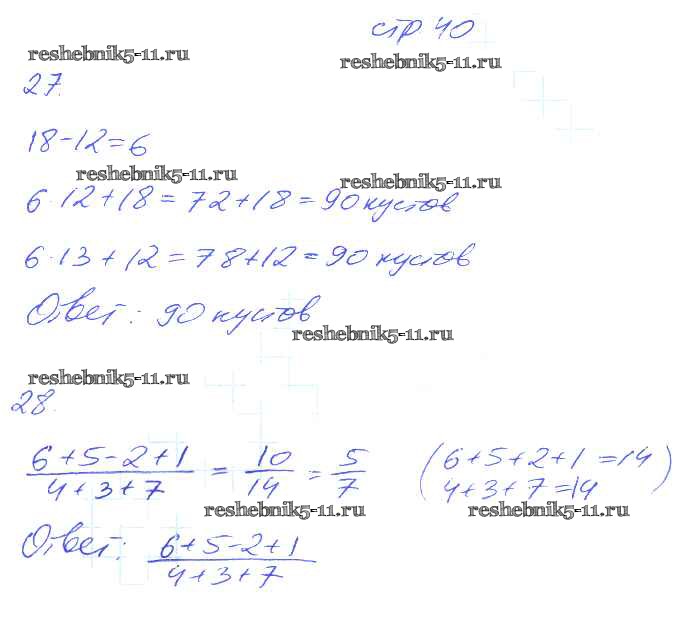 стр 40
reshebnik5-11.ru
reshebnik5-11.ru
27.
18-12=6
reshebnik5-11.ru
reshebnik5-11.ru
6·12+18=72+18=90 кустов
6·13+12=78+12=90 кустов
Ответ: 90 кустов
reshebnik5-11.ru
reshebnik5-11.ru
28.
6+5-2+1 / 4+3+7 = 10/14 = 5/7 (6+5+2+1=14
4+3+7=14)
reshebnik5-11.ru
reshebnik5-11.ru
Ответ: 6+5-2+1 / 4+3+7